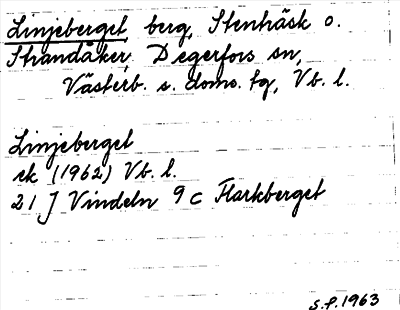 Linjeberget, berg, Stenträsk o.
Strandåker, Degerfors sn,
Västerb. s. doms. tg, Vb. l.
Linjeberget
ek (1962) Vb. l.
21 J Vindeln 9 c Flarkberget
S.P. 1963